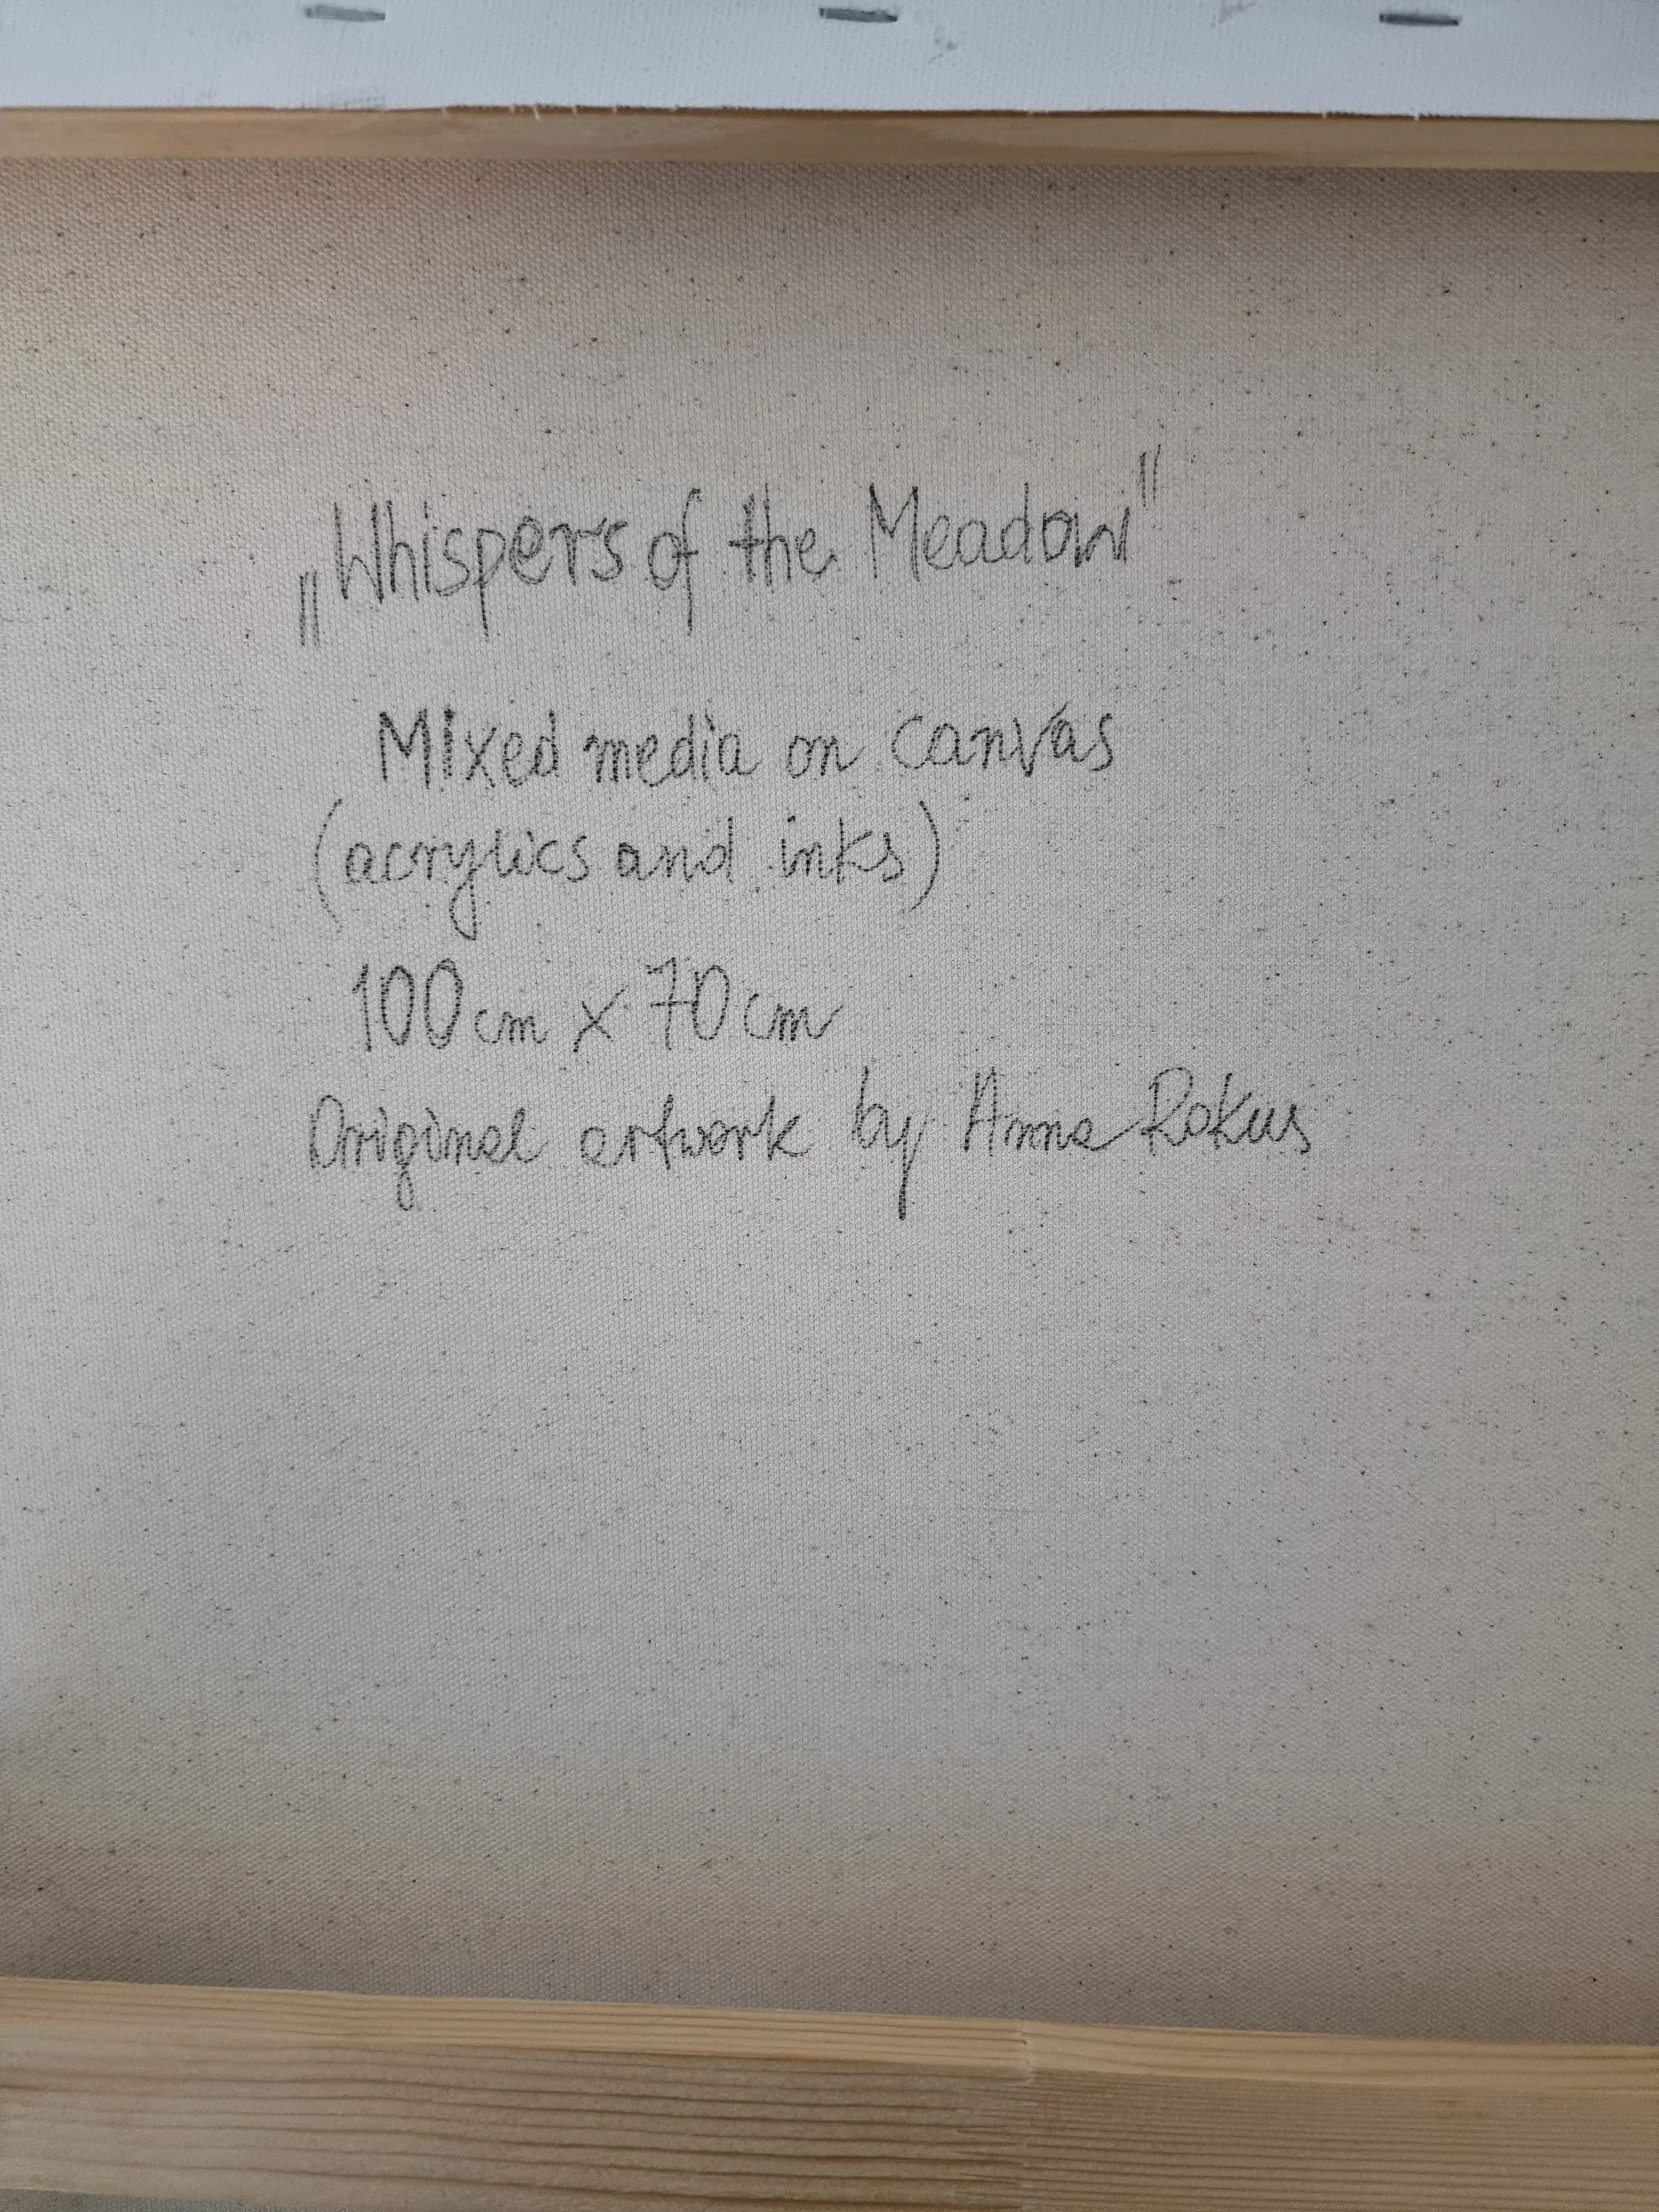 „Whispers of the Meadow"
Mixed media on canvas
(acrylics and inks)
100cm x 70cm
Original artwork by Anna Rokus